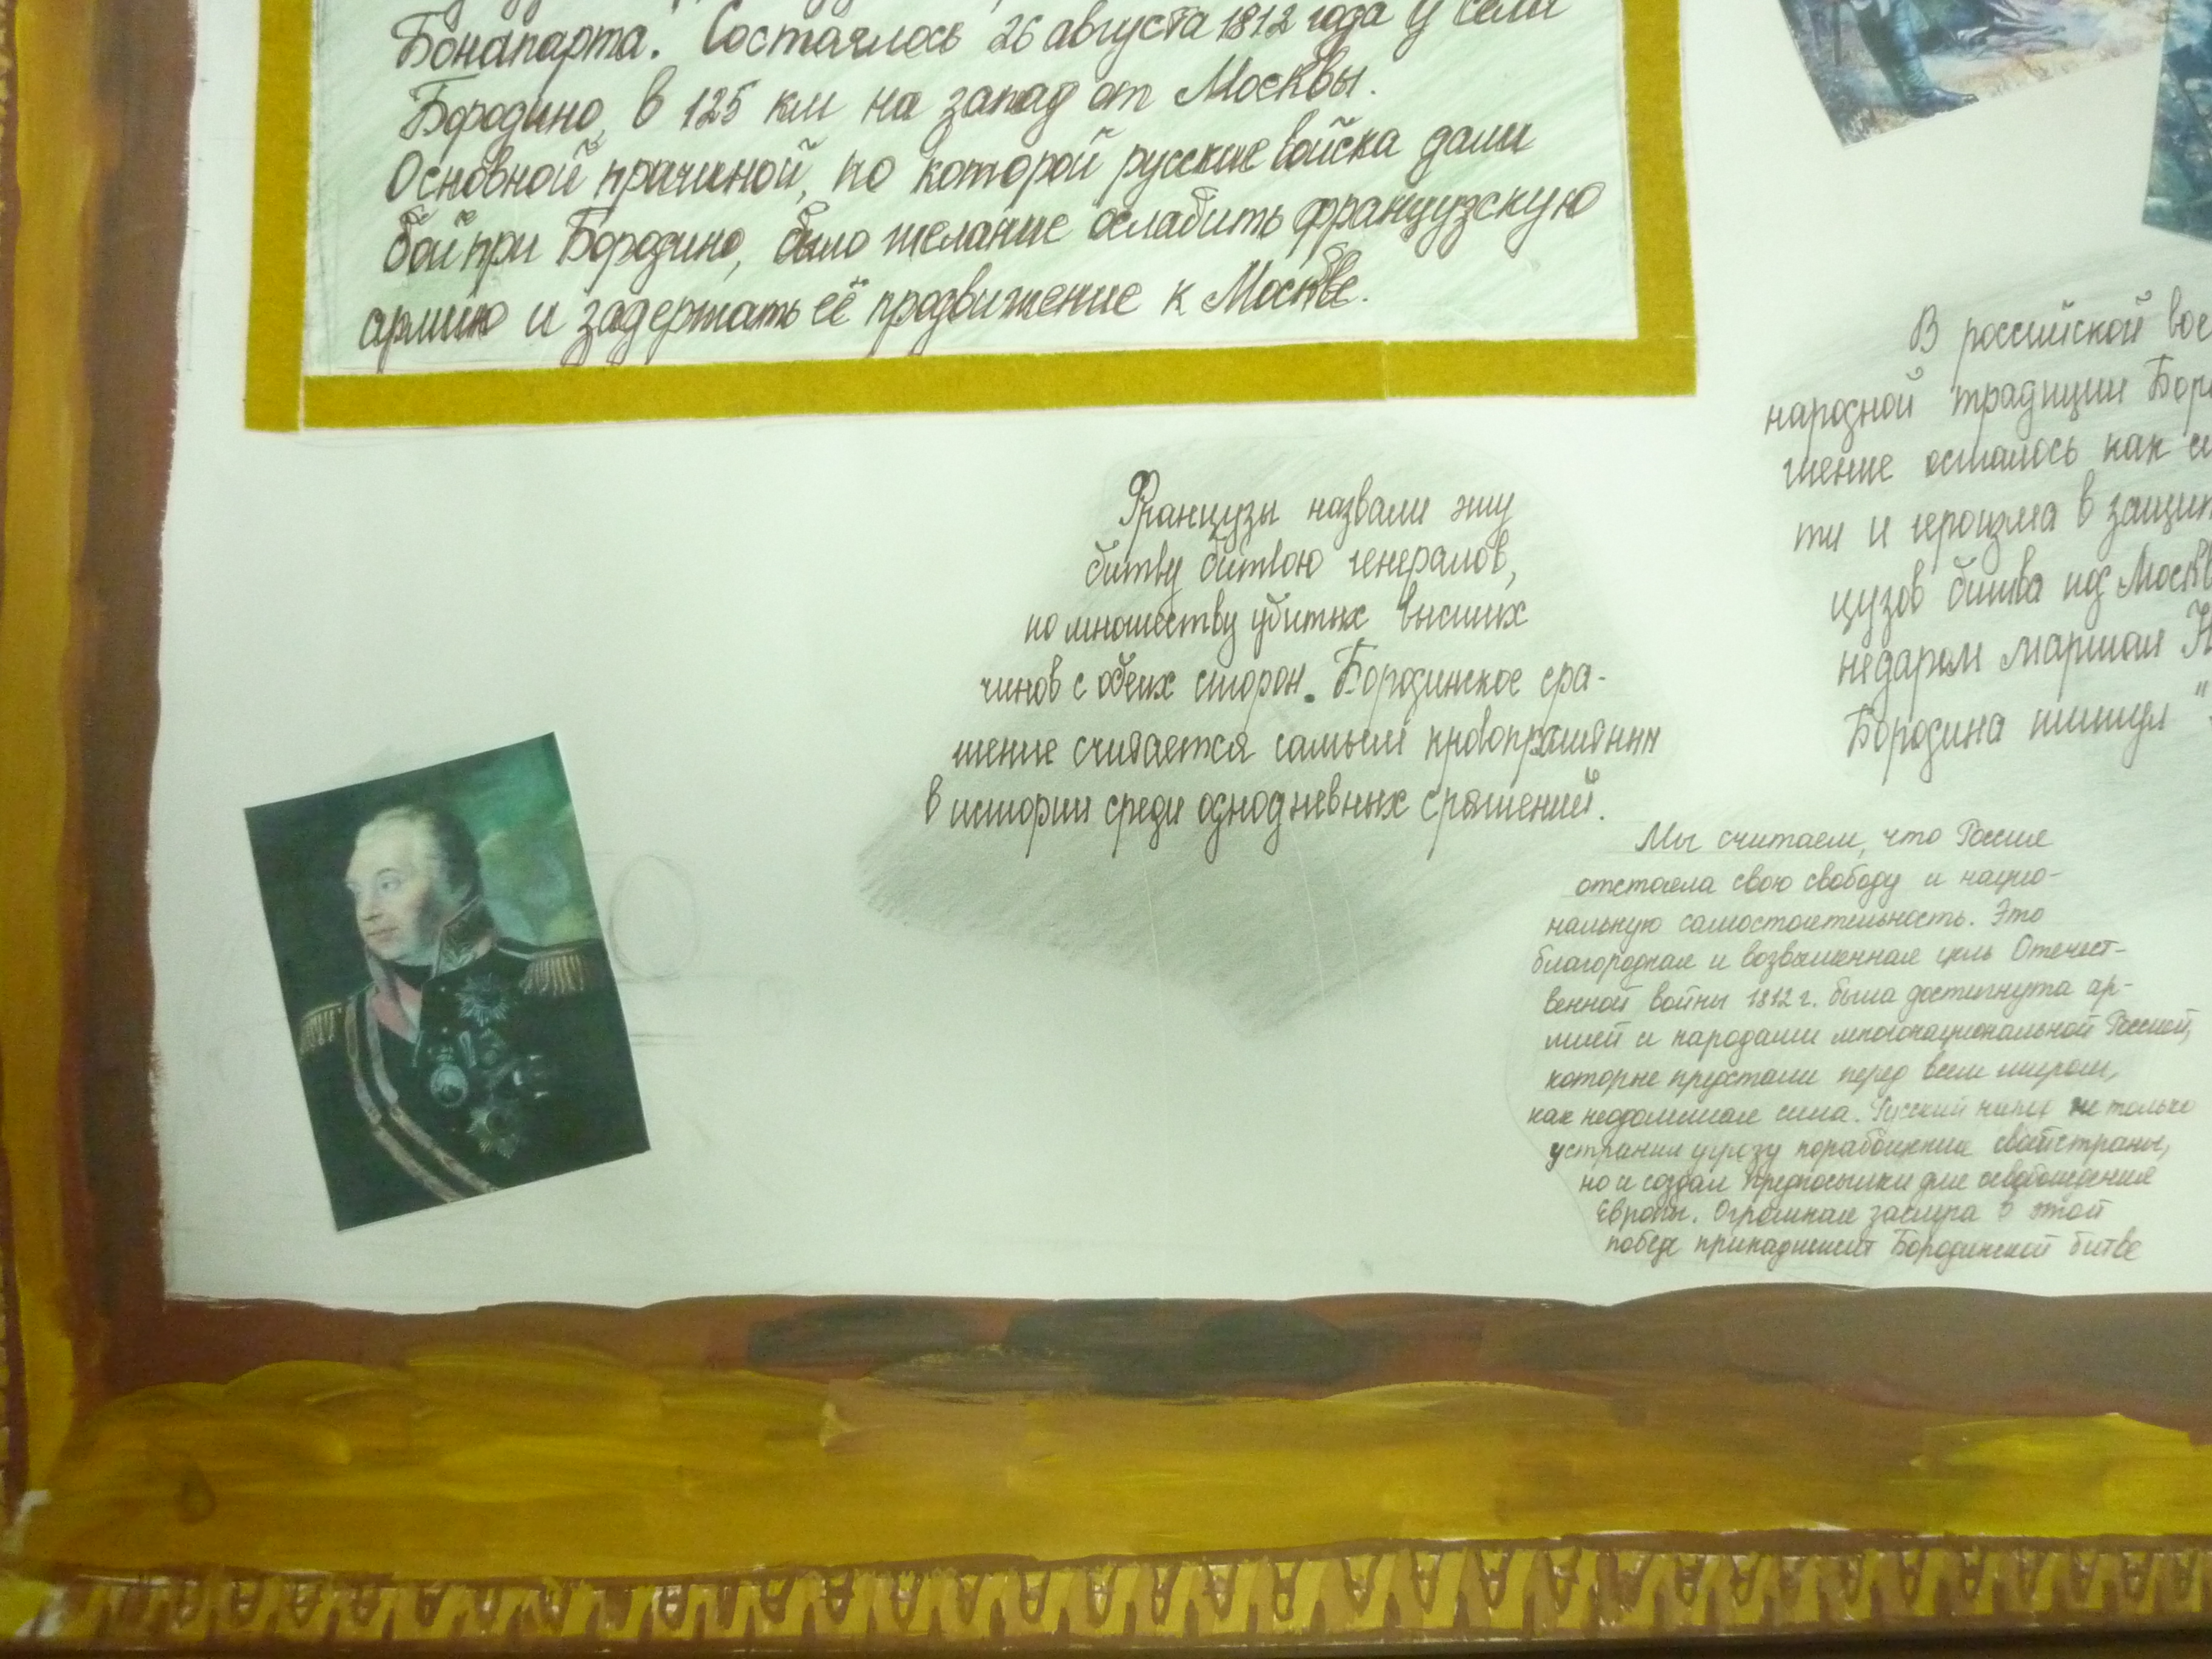 Бонапарта. Состоялось 26 августа 1812 года у села
Бородино, в 125 км на запад от Москвы.
Основной причиной, по которой русские войска дали
бой при Бородино, было желание ослабить французскую
армию и задержать её продвижение к Москве.
Французы назвали эту
битву битвою генералов,
по множеству убитых высших
чинов с обеих сторон. Бородинское сра-
жение считается самым кровопролитным
в истории среди однодневных сражений.
В российской
народной традиции
жение осталось как
ти и героизма в
цузов битва под
недаром маршал
Бородина
Мы считаем, что Россия
отстояла свою свободу и нацио-
нальную самостоятельность. Это
благородная и возвышенная цель Отечест-
венной войны 1812 г. была достигнута ар-
мией и народами многонациональной Россией,
которые предстали перед всем миром,
как неодолимая сила. Русский народ не только
устранил угрозу порабощения своей страны,
но и создал предпосылки для освобождения
Европы. Огромная заслуга в этой
победе принадлежит Бородинской битве